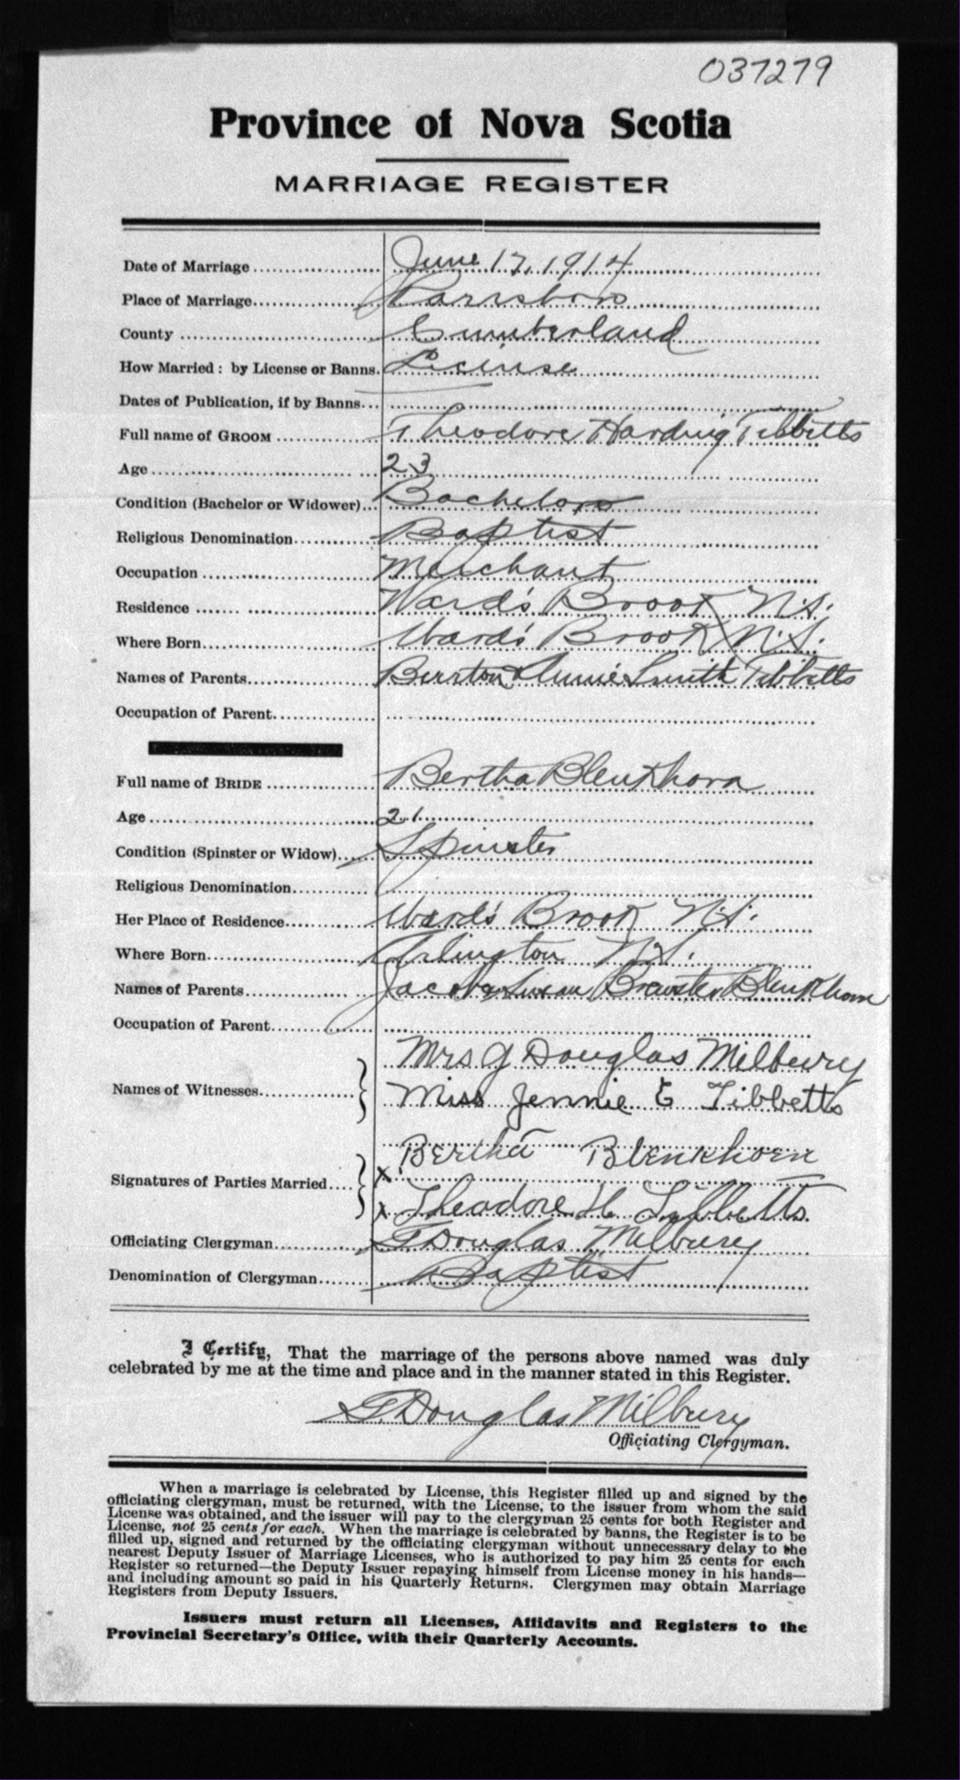 037279
Province of Nova Scotia
MARRIAGE REGISTER
Date of Marriage June 17, 1914
Place of Marriage Parrsboro
County Cumberland
How Married: by License or Banns. License
Dates of Publication, if by Banns
Full name of GROOM Theodore Harding Tibbetts
Age 23
Condition (Bachelor or Widower) Bachelor
Religious Denomination Baptist
Occupation Merchant
Residence Ward's Brook N.S.
Where Born Ward's Brook N.S.
Names of Parents Burton & Annie Smith Tibbetts
Occupation of Parent
Full name of BRIDE Bertha Blenkhorn
Age 21
Condition (Spinster or Widow) Spinster
Religious Denomination
Her Place of Residence Ward's Brook N.S.
Where Born Arlington N.S.
Names of Parents Jacob & Susan Brewster Blenkhorn
Occupation of Parent
Mrs G Douglas Milbury
Names of Witnesses
Miss Jennie E Tibbetts
Bertha Blenkhorn
Signatures of Parties Married x
x Theodore H Tibbetts
Officiating Clergyman G Douglas Milbury
Denomination of Clergyman Baptist
I Certify, That the marriage of the persons above named was duly
celebrated by me at the time and place and in the manner stated in this Register.
G. Douglas Milbury
Officiating Clergyman.
When a marriage is celebrated by License, this Register filled up and signed by the
officiating clergyman, must be returned, with the License, to the issuer from whom the said
License was obtained, and the issuer will pay to the clergyman 25 cents for both Register and
License, not 25 cents for each. When the marriage is celebrated by banns, the Register is to be
filled up, signed and returned by the officiating clergyman without unnecessary delay to the
nearest Deputy Issuer of Marriage Licenses, who is authorized to pay him 25 cents for each
Register so returned—the Deputy Issuer repaying himself from License money in his hands—
and including amount so paid in his Quarterly Returns. Clergymen may obtain Marriage
Registers from Deputy Issuers.
Issuers must return all Licenses, Affidavits and Registers to the
Provincial Secretary's Office, with their Quarterly Accounts.